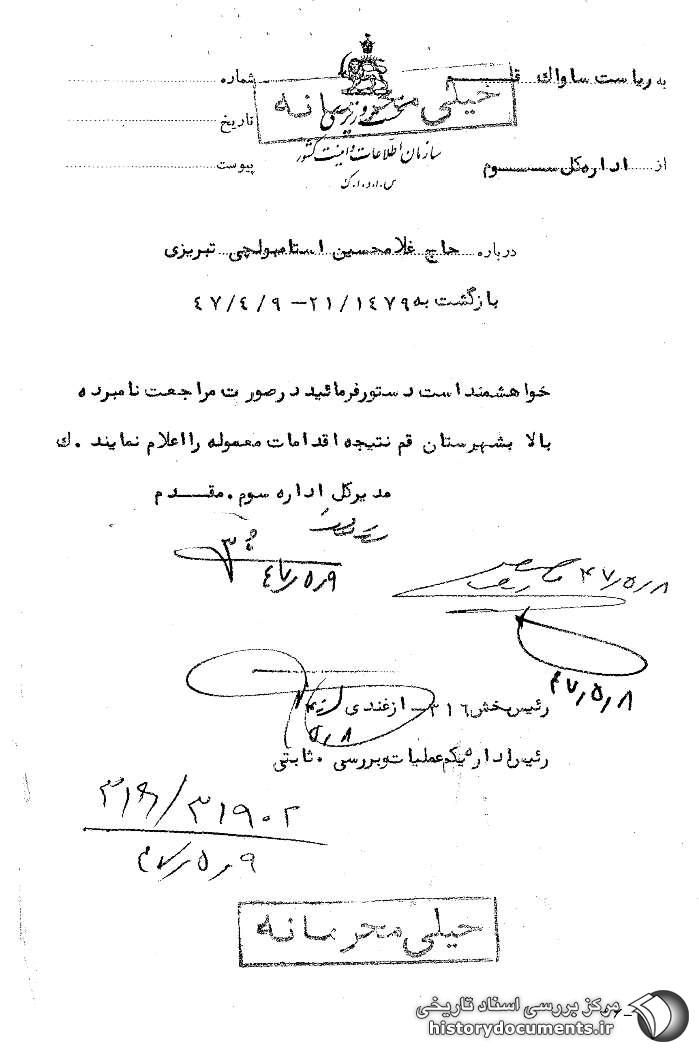 به ریاست ساواک قم
شماره
خیلی محرمانه
نخست وزیری
تاریخ
سازمان اطلاعات و امنیت کشور
از اداره کل سوم
پیوست
س.ا.و.ا.ک
درباره حاج غلامحسین استامبولچی تبریزی
بازگشت به ۲۱/۱۴۷۹ – ۴۷/۴/۹
خواهشمند است دستور فرمائید در صورت مراجعت نامبرده
بالا بشهرستان قم نتیجه اقدامات معموله را اعلام نمایند . ک
مدیر کل اداره سوم . مقدم
۴۷٫۵٫۹
۴۷٫۵٫۸
۴۷٫۵٫۸
رئیس بخش ۳۱۶ – ازغندی
۵٫۸
رئیس اداره یکم عملیات و بررسی . ثابتی
۳۱۶/۳۱۹۰۲
۴۷٫۵٫۹
خیلی محرمانه
مرکز بررسی اسناد تاریخی
historydocuments.ir